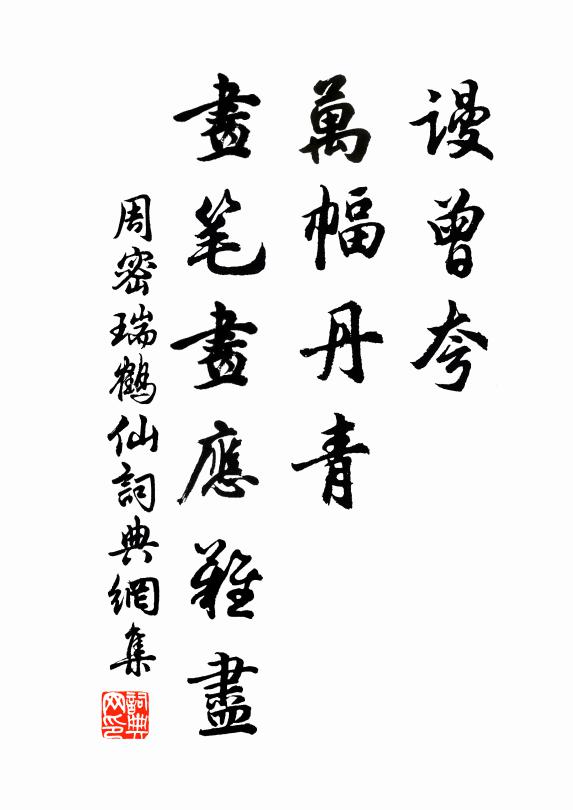 謾曾夸
萬幅丹青
畫笔畫應難盡
周密瑞鶴仙詞典網集
詞典网印